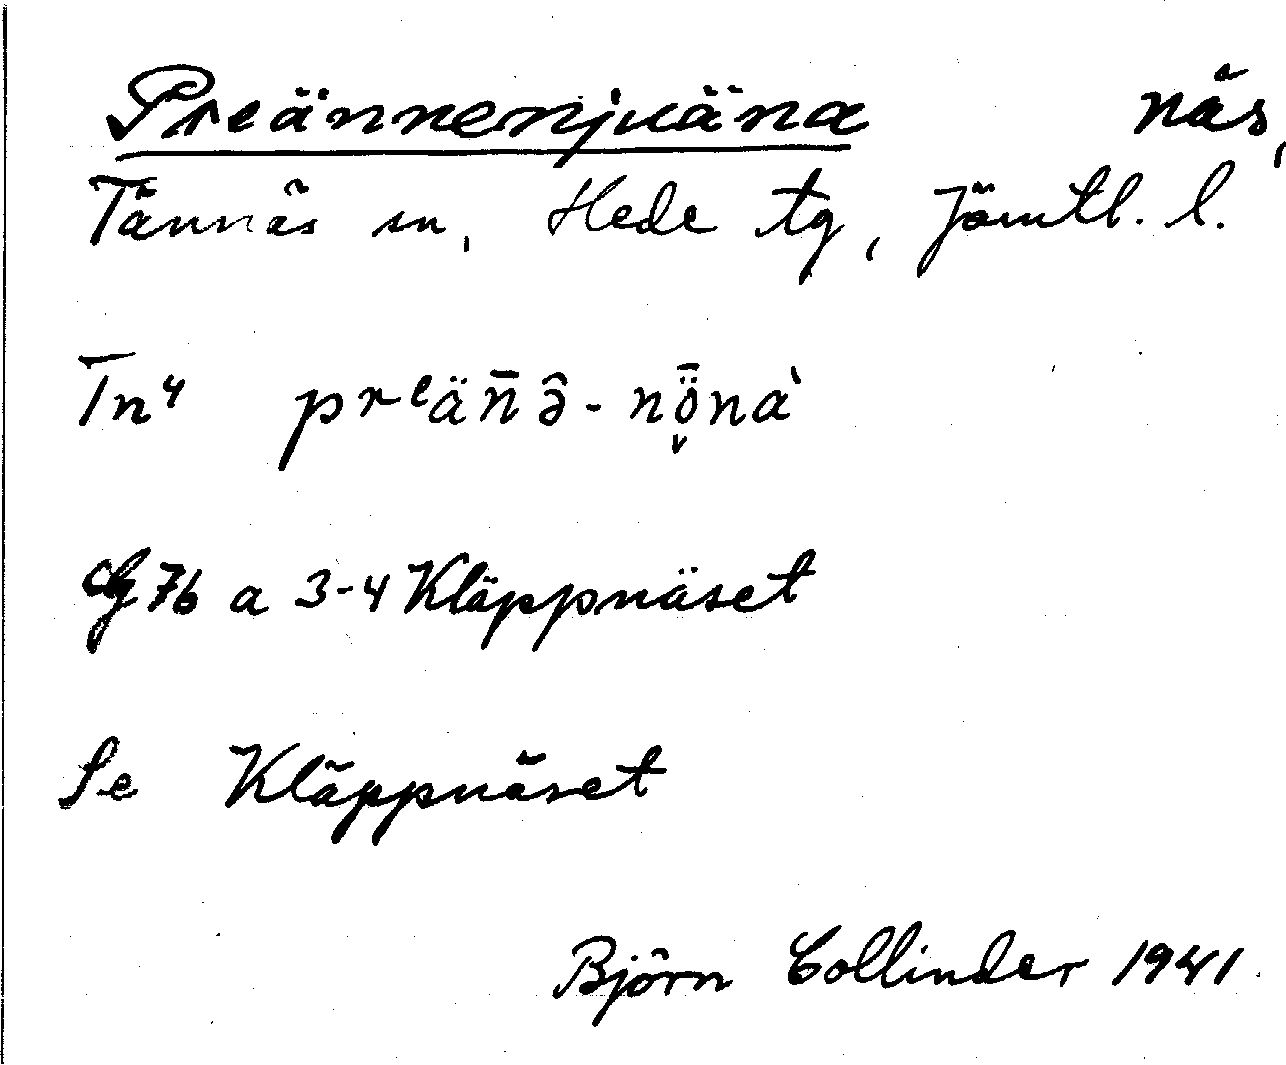 Preännenjuäna näs,
Tännäs sn, Hede tg, Jämtl. l.
Tn⁴ prᵉän̄ə̑-nȫ̬nà
G 76 a 3-4 Kläppnäset
Se Kläppnäset
Björn Collinder 1941